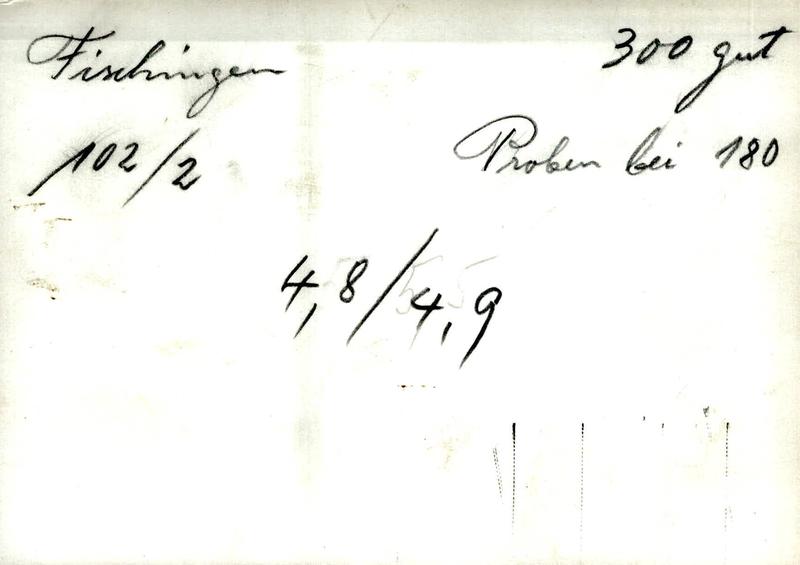 Fischingen
300 gut
102/2
Proben bei 180
4,8/4,9